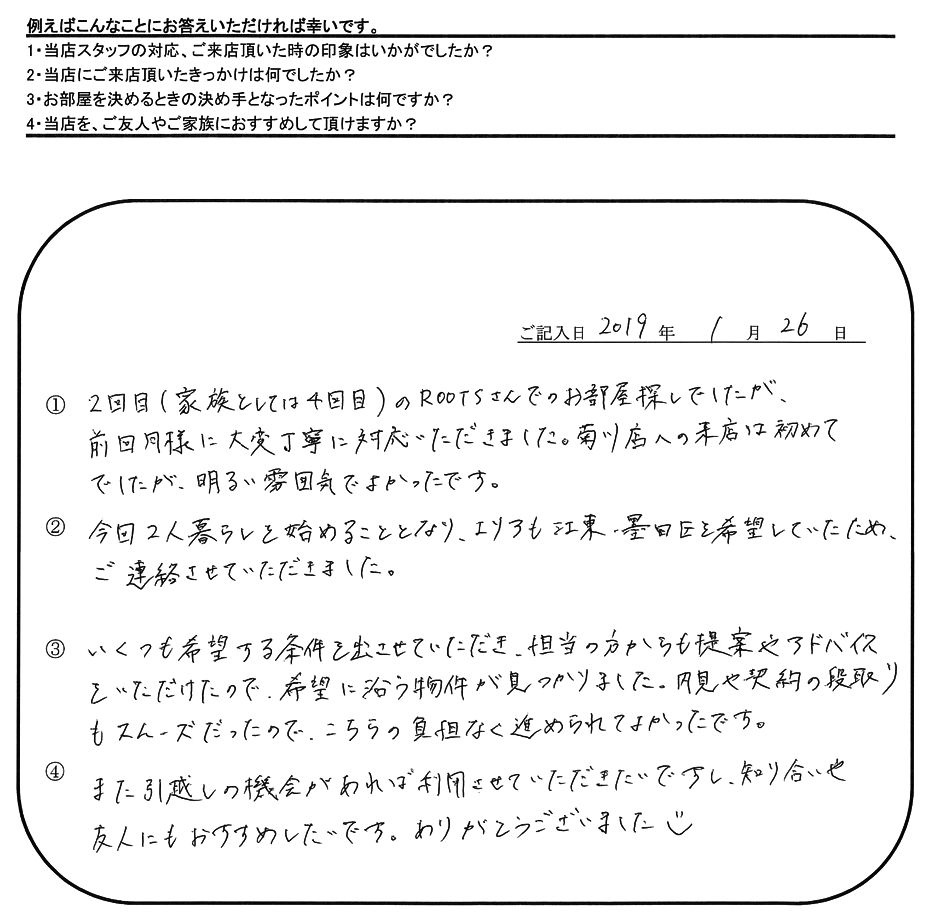 例えばこんなことにお答えいただければ幸いです。
1・当店スタッフの対応、ご来店頂いた時の印象はいかがでしたか？
2・当店にご来店頂いたきっかけは何でしたか？
3・お部屋を決めるときの決め手となったポイントは何ですか？
4・当店を、ご友人やご家族におすすめして頂けますか？
ご記入日 2019 年 1 月 26 日
① 2回目(家族としては4回目)のROOTSさんでのお部屋探しでしたが、
前回同様に大変丁寧に対応いただきました。菊川店への来店は初めて
でしたが、明るい雰囲気でよかったです。
② 今回2人暮らしを始めることとなり、エリアも江東・墨田区を希望していたため、
ご連絡させていただきました。
③ いくつも希望する条件を出させていただき、担当の方からも提案やアドバイス
をいただけたので、希望に沿う物件が見つかりました。内見や契約の段取り
もスムーズだったので、こちらの負担なく進められてよかったです。
④ また引越しの機会があれば利用させていただきたいですし、知り合いや
友人にもおすすめしたいです。ありがとうございました